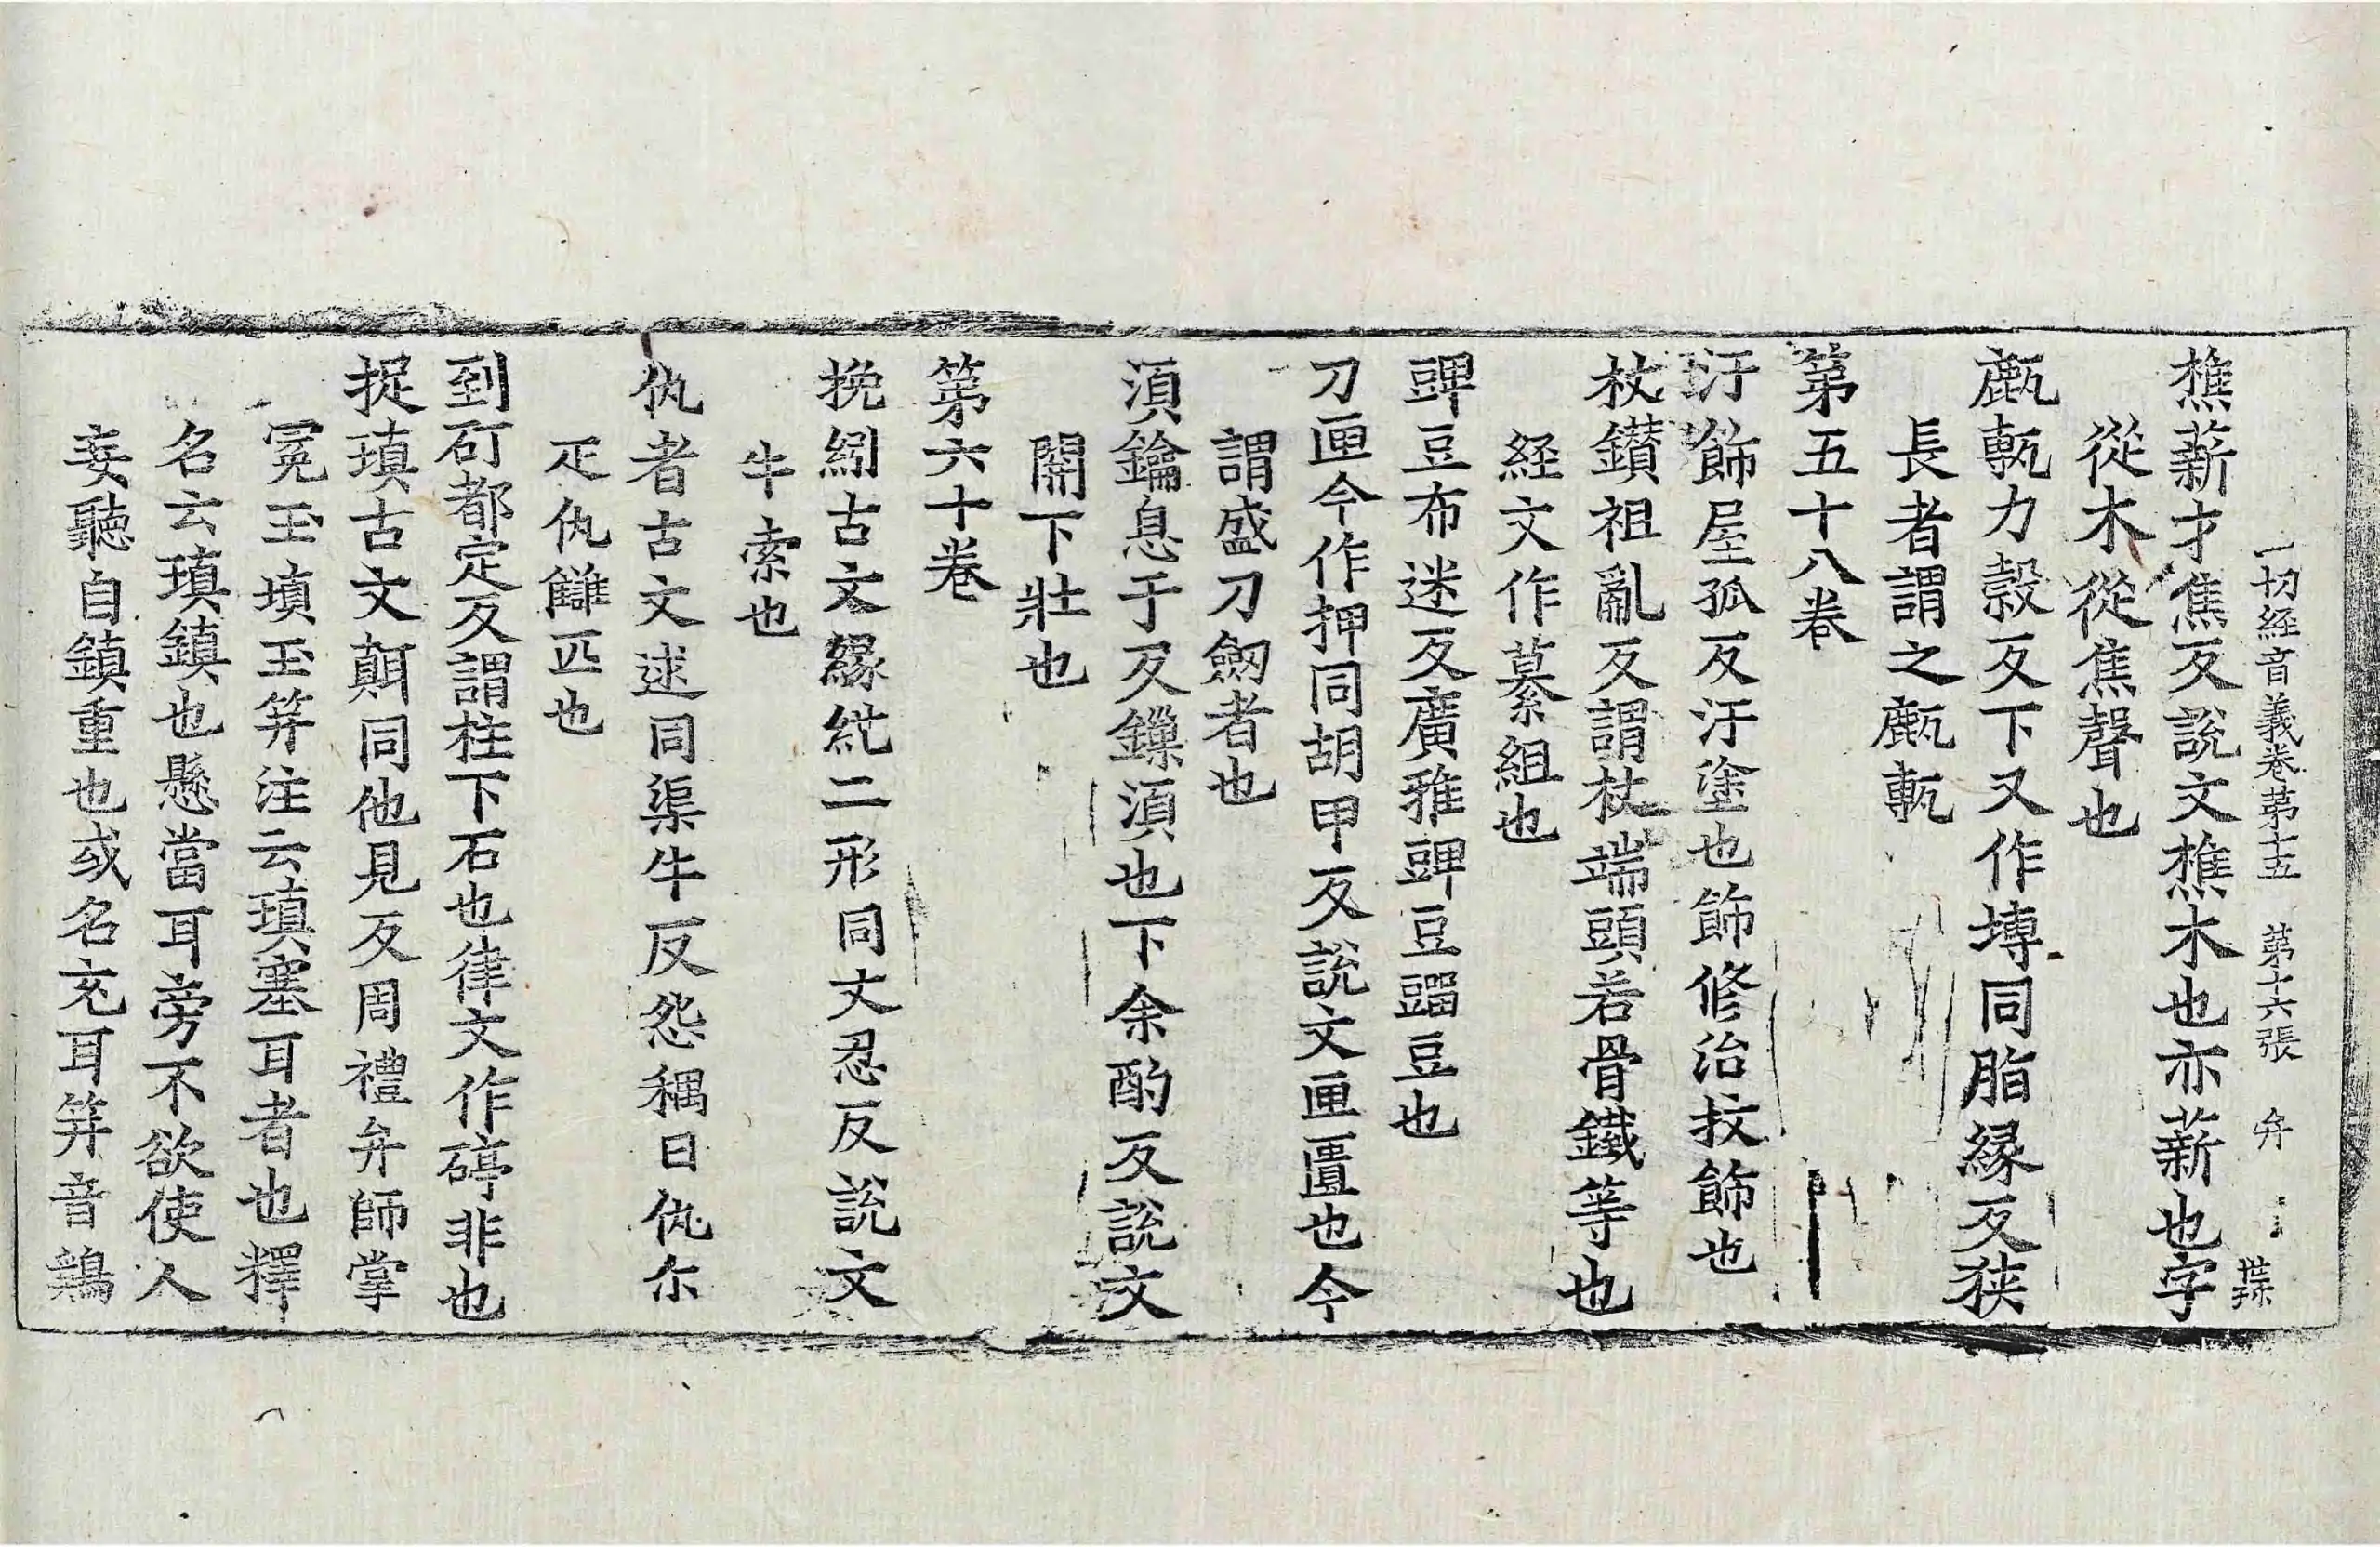 一切経音義卷第十五 第十六張 弁
樵薪才焦反說文樵木也亦薪也字
從木從焦聲也
䴎㼾力穀反下又作塼同脂縁反狹
長者謂之䴎㼾
第五十八卷
汙飾屋孤反汙塗也飾修治扙飾也
杖鑚祖亂反謂杖端頭若骨鐵等也
経文作纂組也
豍豆布迷反廣雅豍豆䝁豆也
刀匣今作押同胡甲反說文匣匱也今
謂盛刀劒者也
湏鑰息于反鏁湏也下余酌反說文
關下壯也
第六十卷
挽紖古文縁紖二形同丈忍反說文
牛索也
仇者古文逑同渠牛反怨耦曰仇尒
疋仇讎匹也
到矴都定反謂柱下石也律文作碠非也
捉瑱古文䫌同他見反周禮弁師掌
冕玉塡玉笄注云瑱塞耳者也釋
名云瑱鎮也懸當耳旁不欲使人
妄聽自鎮重也或名充耳笄音鷄